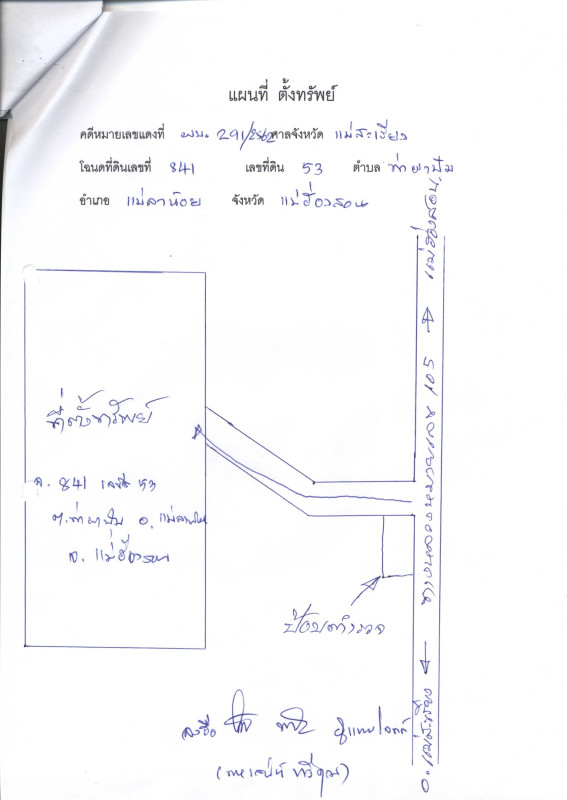 แผนที่ ตั้งทรัพย์
คดีหมายเลขแดงที่ ผบ. 291/2562 ศาลจังหวัด แม่สะเรียง
โฉนดที่ดินเลขที่ 841 เลขที่ดิน 53 ตำบล ท่าผาปุ้ม
อำเภอ แม่ลาน้อย จังหวัด แม่ฮ่องสอน
แม่ฮ่องสอน
ทางหลวงหมายเลข 108
อ. แม่สะเรียง
ที่ตั้งทรัพย์
ฉ. 841 เลขที่ 53
ต. ท่าผาปุ้ม อ. แม่ลาน้อย
จ. แม่ฮ่องสอน
ป้อมตำรวจ
ลงชื่อ ผู้แทนโจทก์